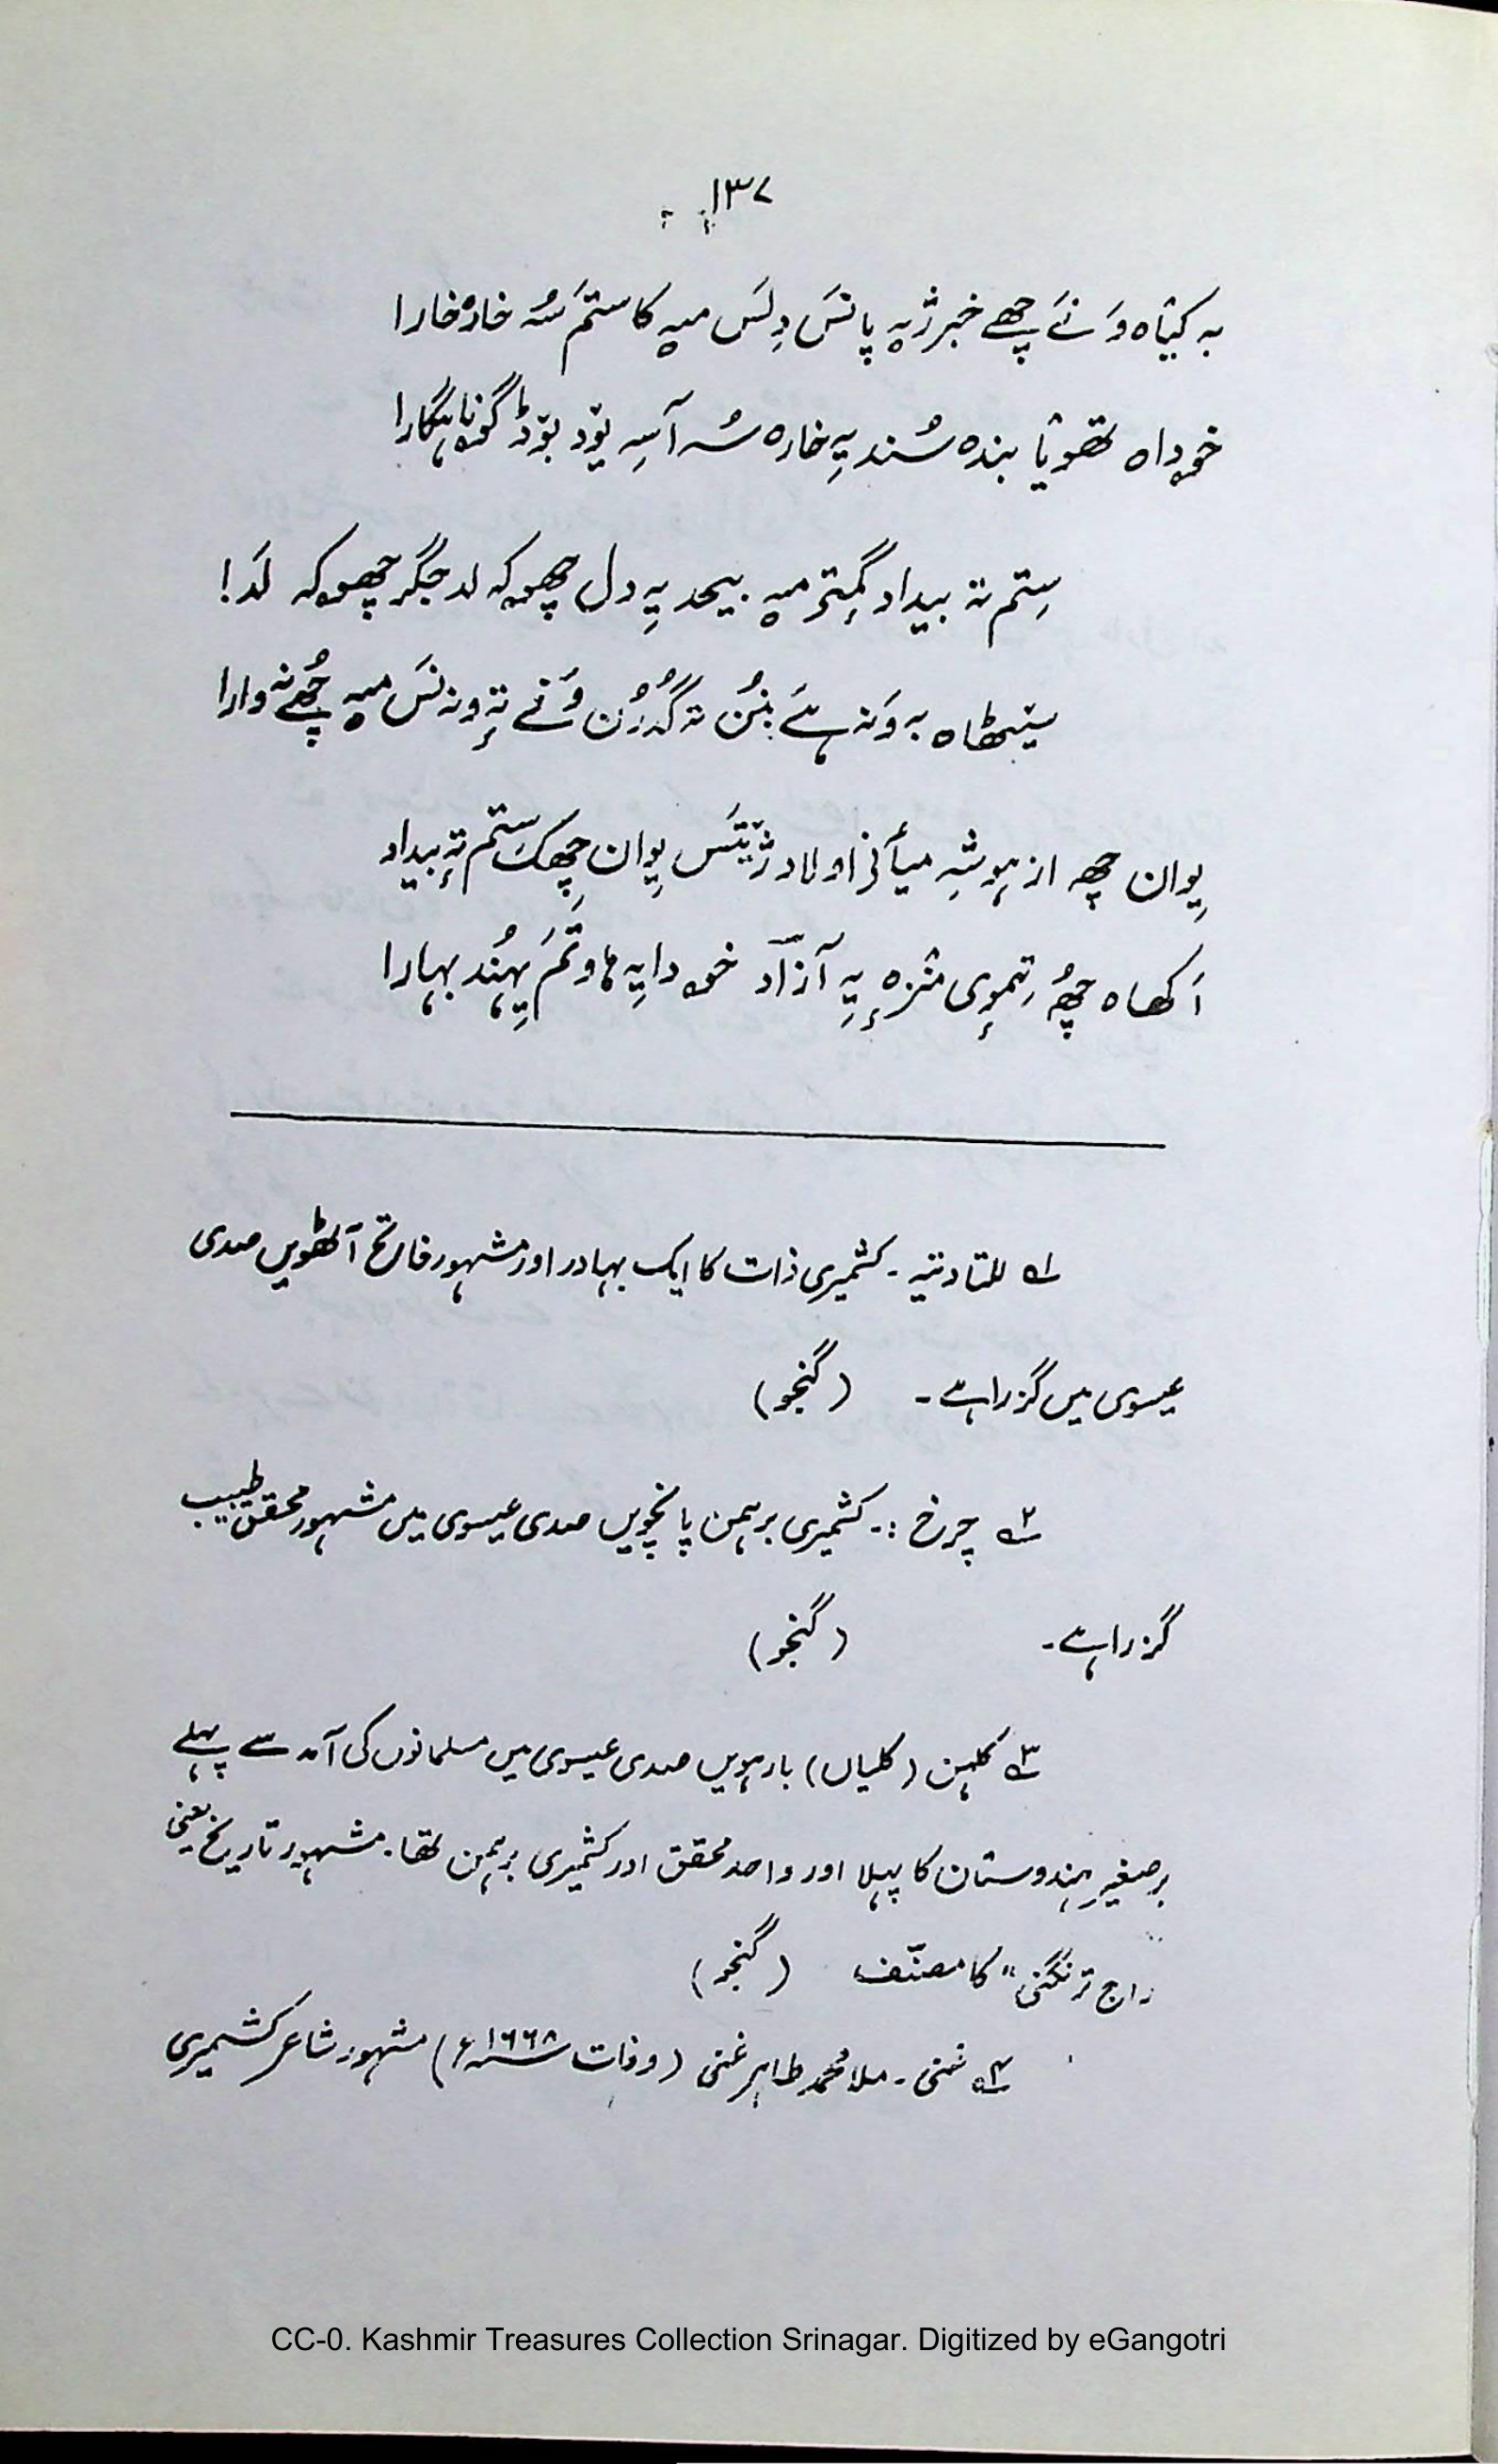 ۱۳۷
بہ کیٛاہ وَ نَے چھے خبر ژیہ پانسَ دِلسَ میہ کاستمَ سُہ خارٕ خارا
خوداہ تھوٚیا بندہ سُند یہِ خارہ سُہ آسہِ یوٚد بوٚڈ گوناہگارا
سِتم تہ بیداد گمٕتۍ میہ بیحد یہِ دل چھوکہ لد جگر چھوکہ لَد!
سیٹھاہ بہ وَنہ ہےَ بنُن تہ گُدرُن وَنے تہٕ ونہ نسَ میہ چھُے نہ وارا
یِوان چھہ از ہوشہِ میأنی اولاد ژیٚتسَ یِوان چھِکَ سَتم تہٕ بیداد
اَکھاہ چھُہ تِموٕی منزہٕ یہِ آزاد خودایہِ ہاوتمَ یِہُند بہارا
۱؎ للتادتیہ ۔ کشمیری ذات کا ایک بہادر اور مشہور فاتح آٹھویں صدی
عیسوی میں گزرا ہے ۔ (گنجو)
۲؎ چرخ :۔ کشمیری برہمن پانچویں صدی عیسوی میں مشہور محقق طبیب
گزرا ہے ۔ (گنجو)
۳؎ کلہن (کلیاں) بارہویں صدی عیسوی میں مسلمانوں کی آمد سے پہلے
برصغیرِ ہندوستان کا پہلا اور واحد محقق اور کشمیری برہمن تھا ۔ مشہور تاریخ یعنی
"راج ترنگنی" کا مصنّف (گنجو)
۴؎ غنی ۔ ملا محمد طاہر غنی (وفات ۱۶۶۸ء) مشہور شاعر کشمیری
CC-0. Kashmir Treasures Collection Srinagar. Digitized by eGangotri